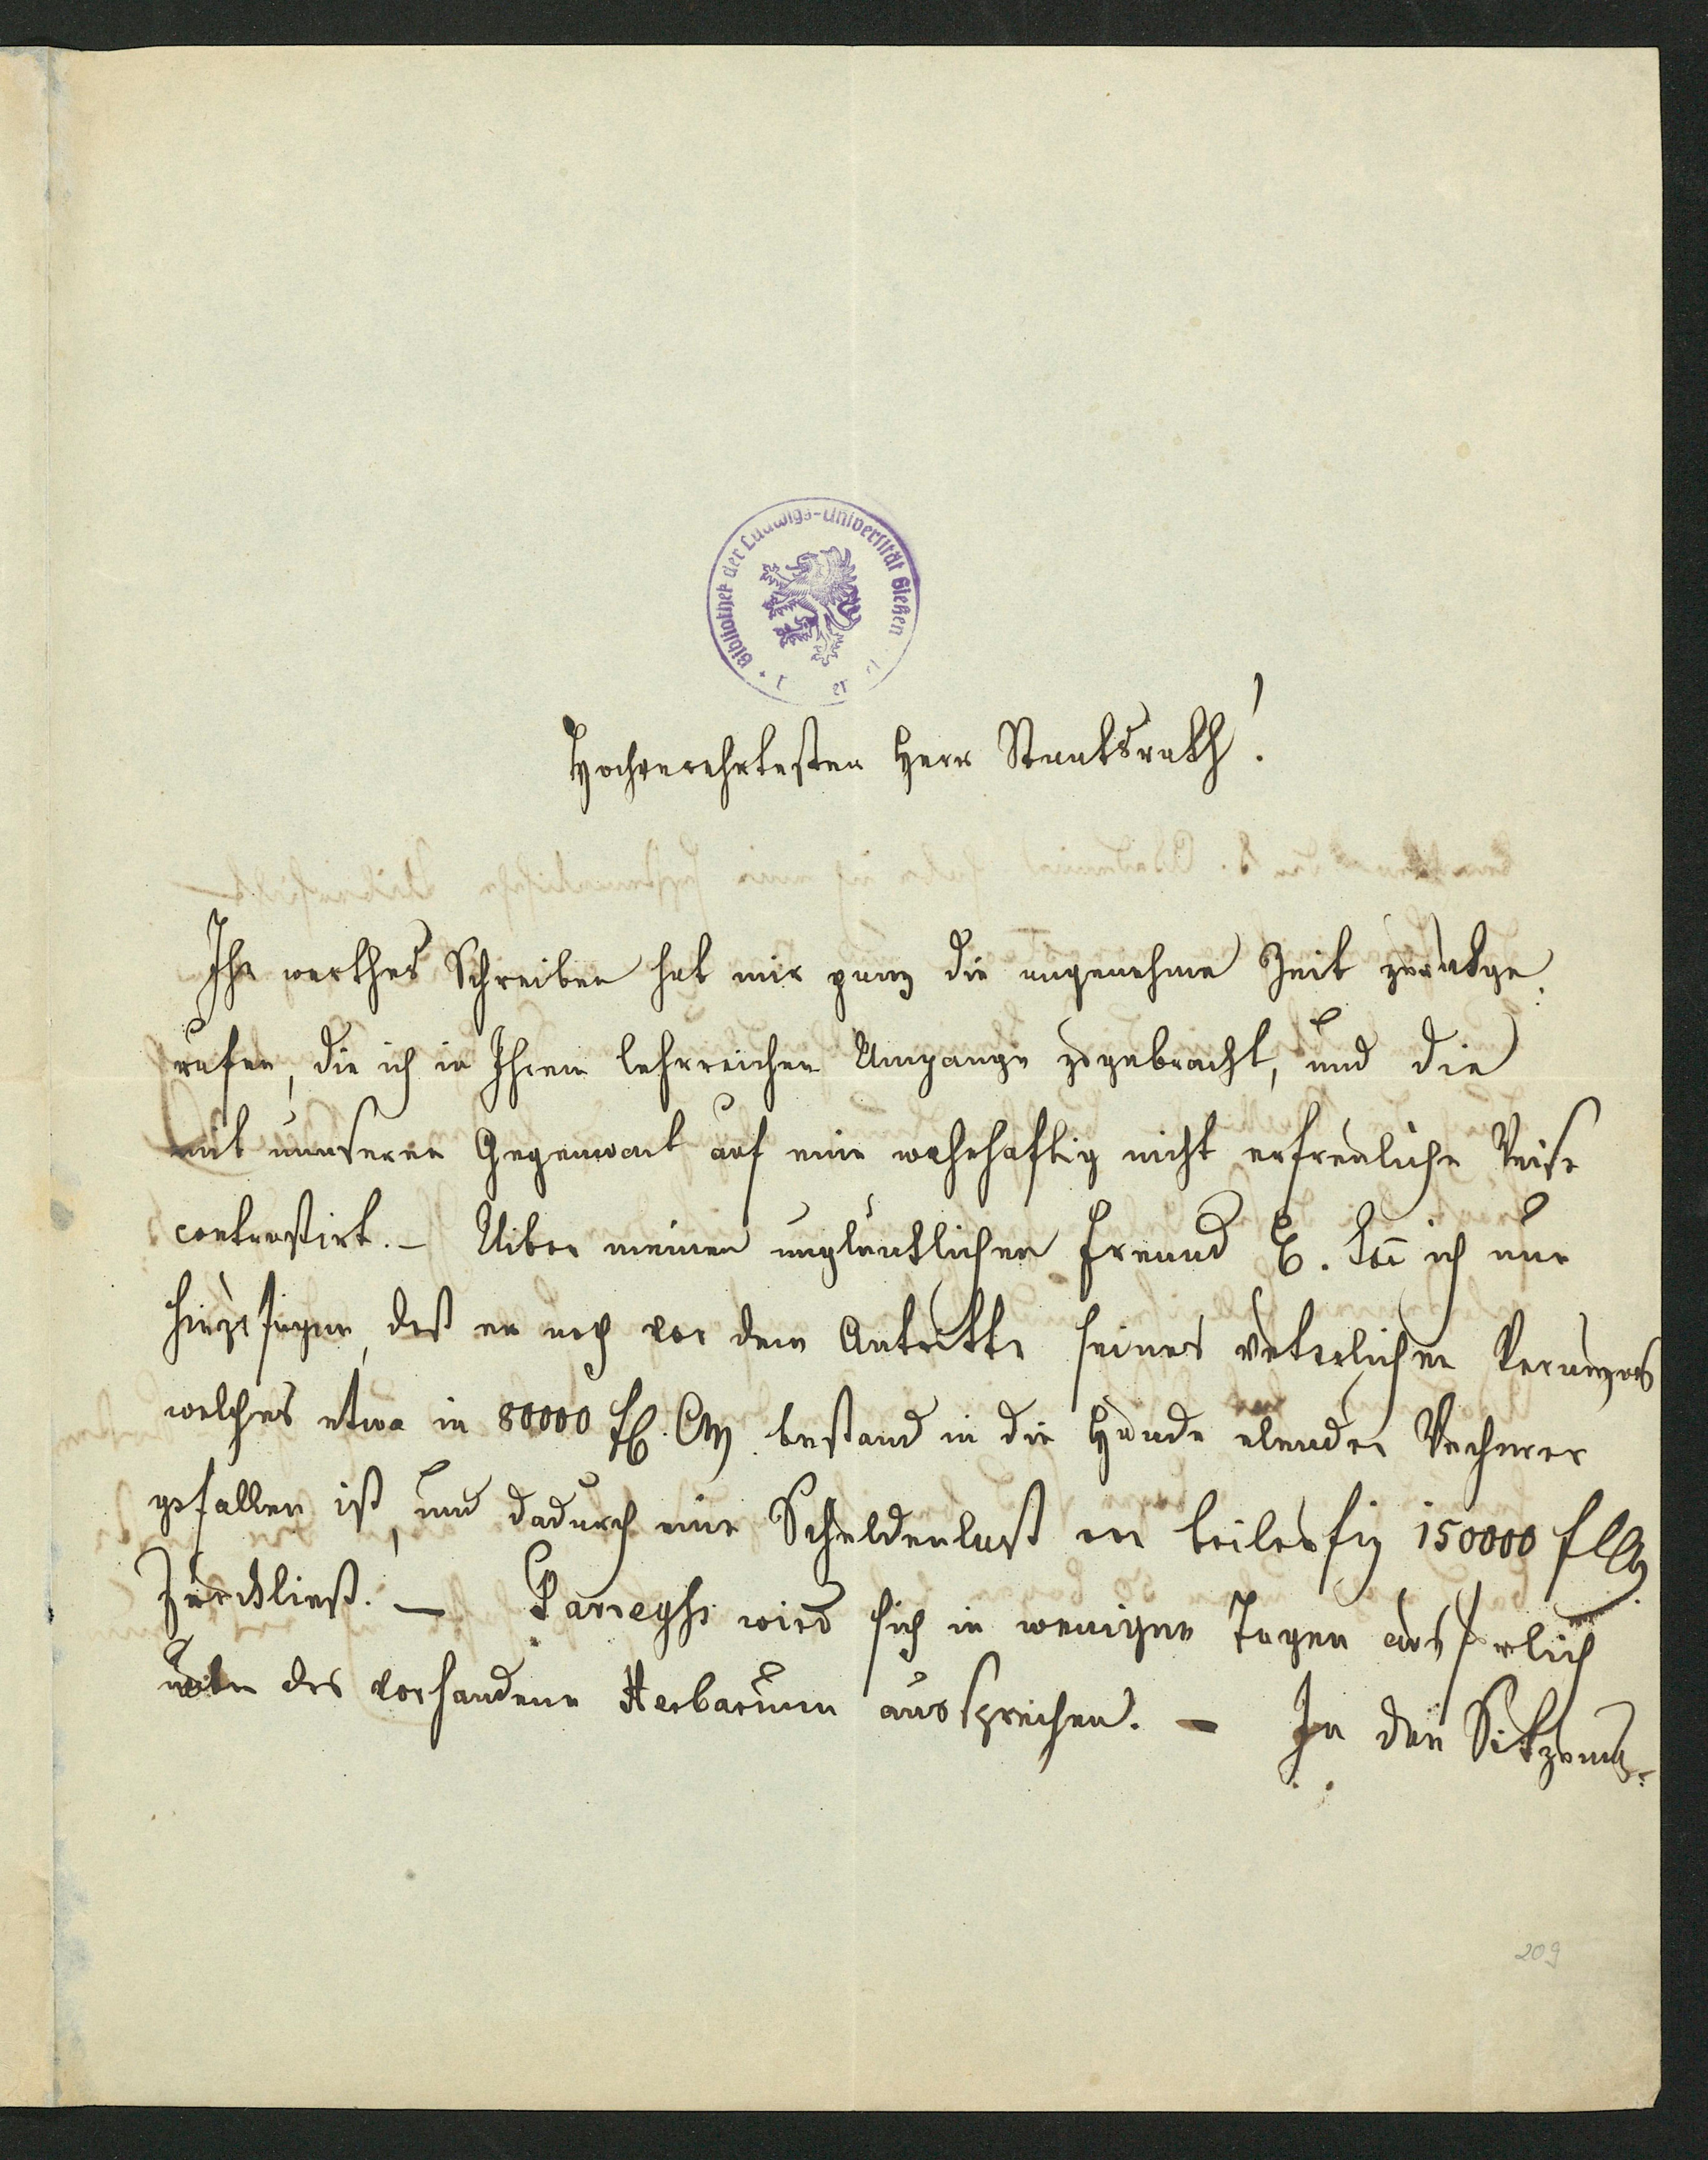 Bibliothek der Ludwigs-Universität Gießen
Hochverehrtester Herr Staatsrath!
Ihr werthes Schreiben hat mir ganz die angenehme Zeit zurükge
rufen, die ich in Ihrem lehrreichen Umgange zugebracht, und die
mit unserer Gegenwart auf eine wahrhaftig nicht erfreuliche Weise
contrastirt. – Uiber meinen unglüklichen Freund E. ich nur
hinzufügen, daß er noch vor dem Antritte seines väterlichen
welches etwa in 80000 fl. CM. bestand in die Hände elender Wucherer
gefallen ist, und dadurch eine Schuldenlast von beileufig 150000 fl CM
zurükließ. – Parreyhs wird sich in wenigen Tagen ausfürlich
über das vorhandene Herbarium aussprechen. – In den Sitzung-
209